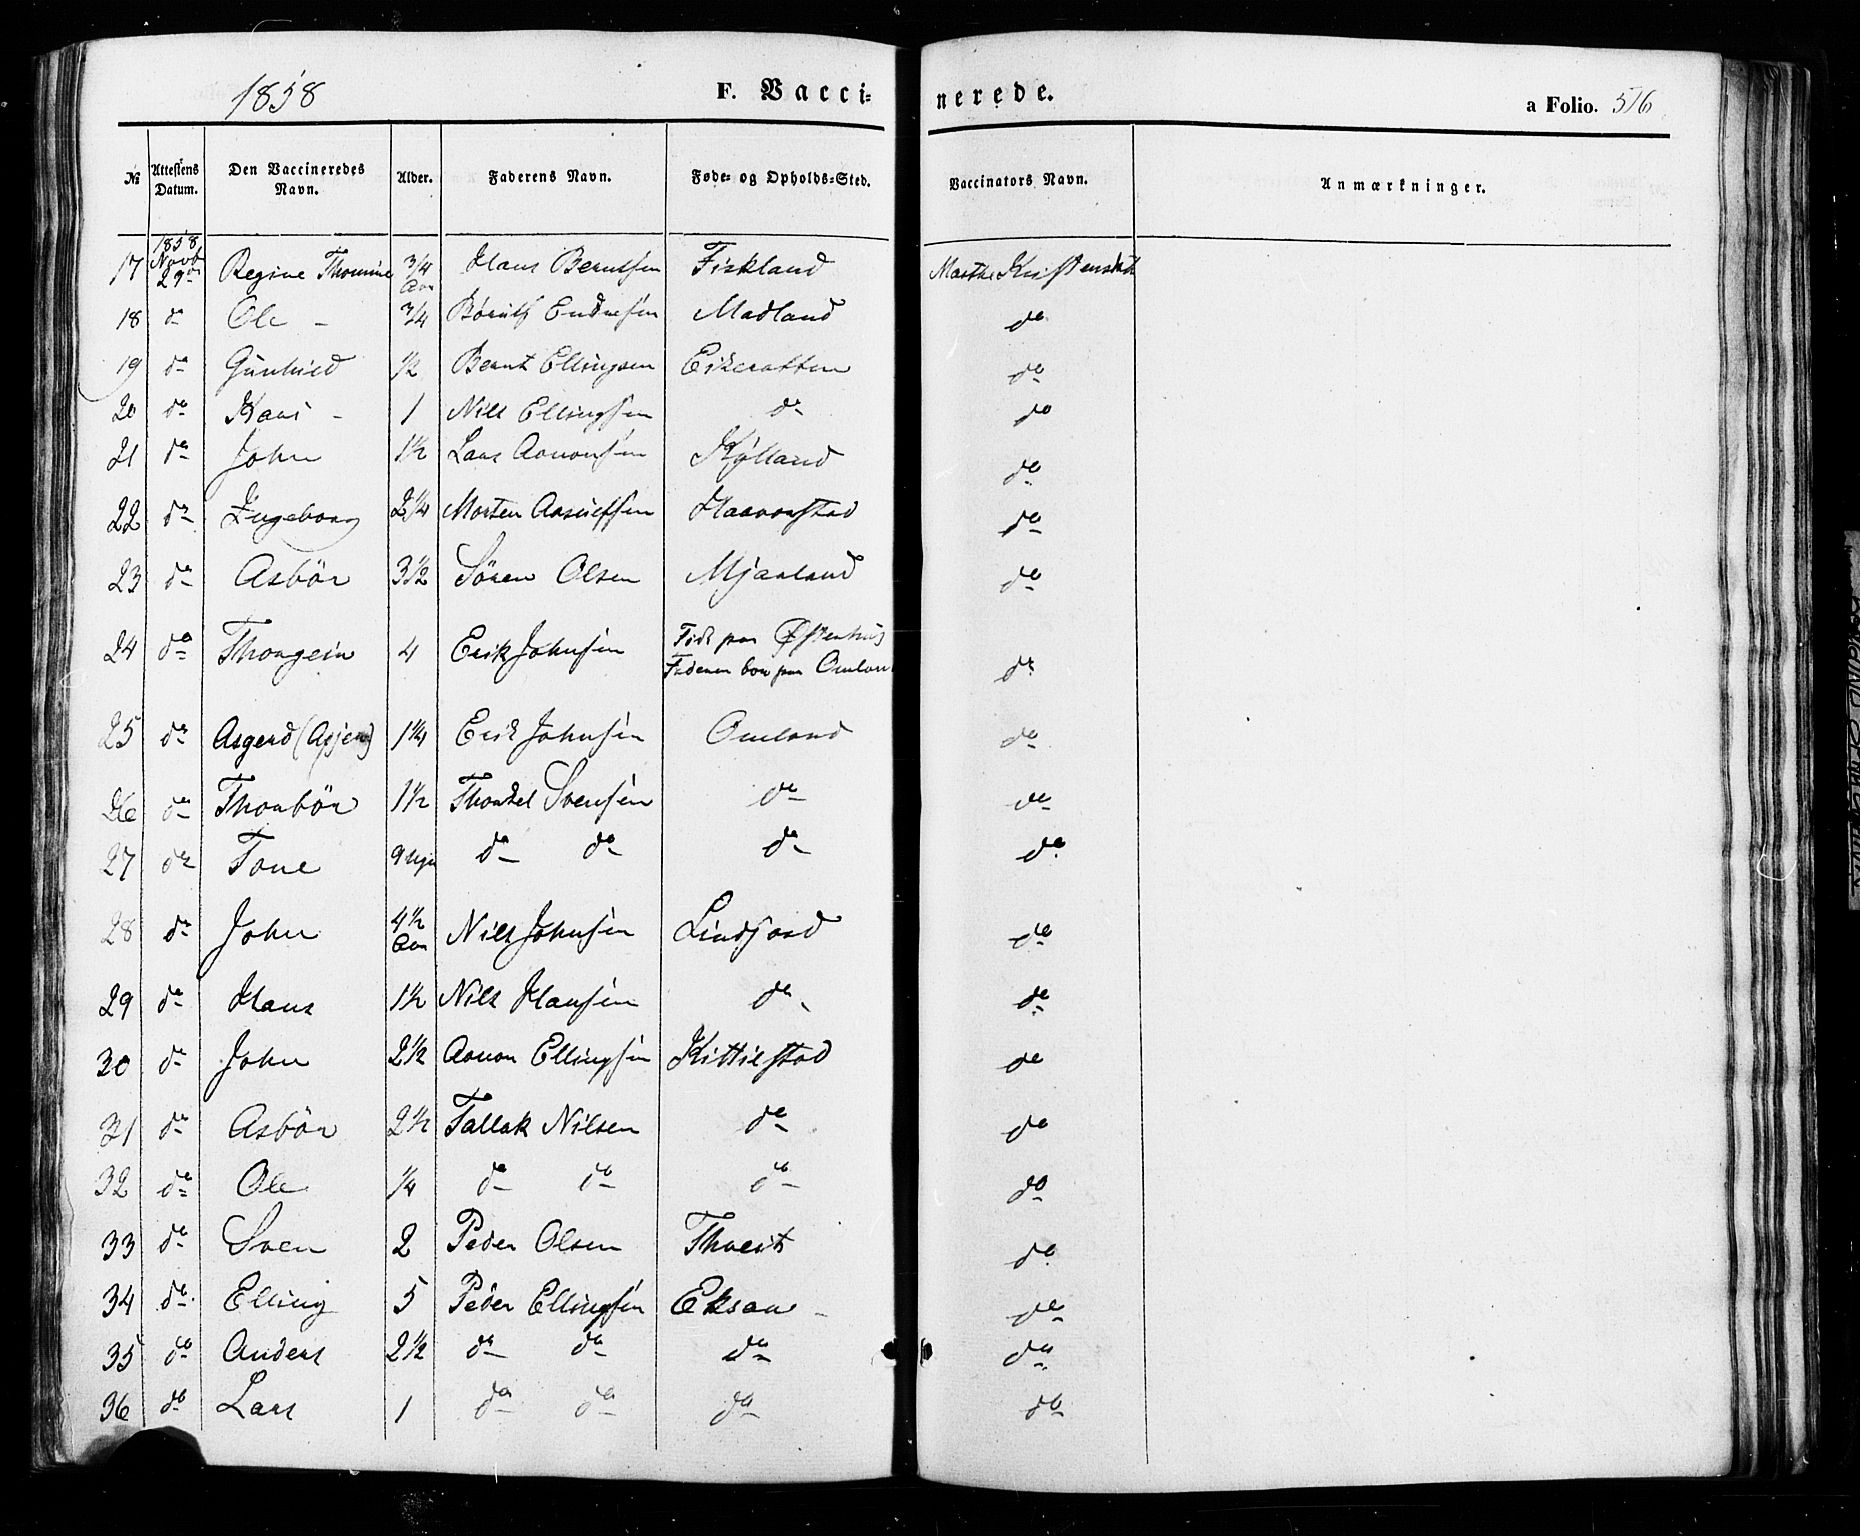 1858 F. Vacci= nerede. a Folio. 516
№ Attestens Datum. Den Vaccineredes Navn. Alder. Faderens Navn. Føde- og Opholds-Sted. Vaccinators Navn. Anmærkninger.
17 1858 Novb 29de Regine Thomine 3/4 Aar Hans Berntsen Fiskland Marthe
18 do Ole - 3/4 Madland do
19 do Gunhild 1/2 Bernt Ellingsen do
20 do Hans - 1 Nils Ellingsen do do
21 do John 1 1/2 Lars Aanonsen Kylland do
22 do Ingeborg 2 1/4 Morten Haavorstad do
23 do Asbör 3 1/2 Sören Olsen Mjaaland do
24 do Thorgein 4 Erik Johnsen Født paa Østenhus
Faderen bor paa Omland do
25 do Asgerd (Asjer) 1 1/4 Erik Johnsen Omland do
26 do Thorbör 1 1/2 Thorkel Svensen do do
27 do Tone 9 Uger do do do do
28 do John 4 1/2 Aar Nils Johnsen Lindjord do
29 do Hans 1 1/2 Nils Hansen do do
30 do John 2 1/2 Aanon Ellingsen Kittilstad do
31 do Asbör 2 1/2 Tallak Nilsen do do
32 do Ole 1/4 do do do do
33 do Sven 2 Peder Olsen Thveit do
34 do Elling 5 Peder Ellingsen Eksaa - do
35 do Anders 2 1/2 do do do do
36 do Lars 1 do do do do